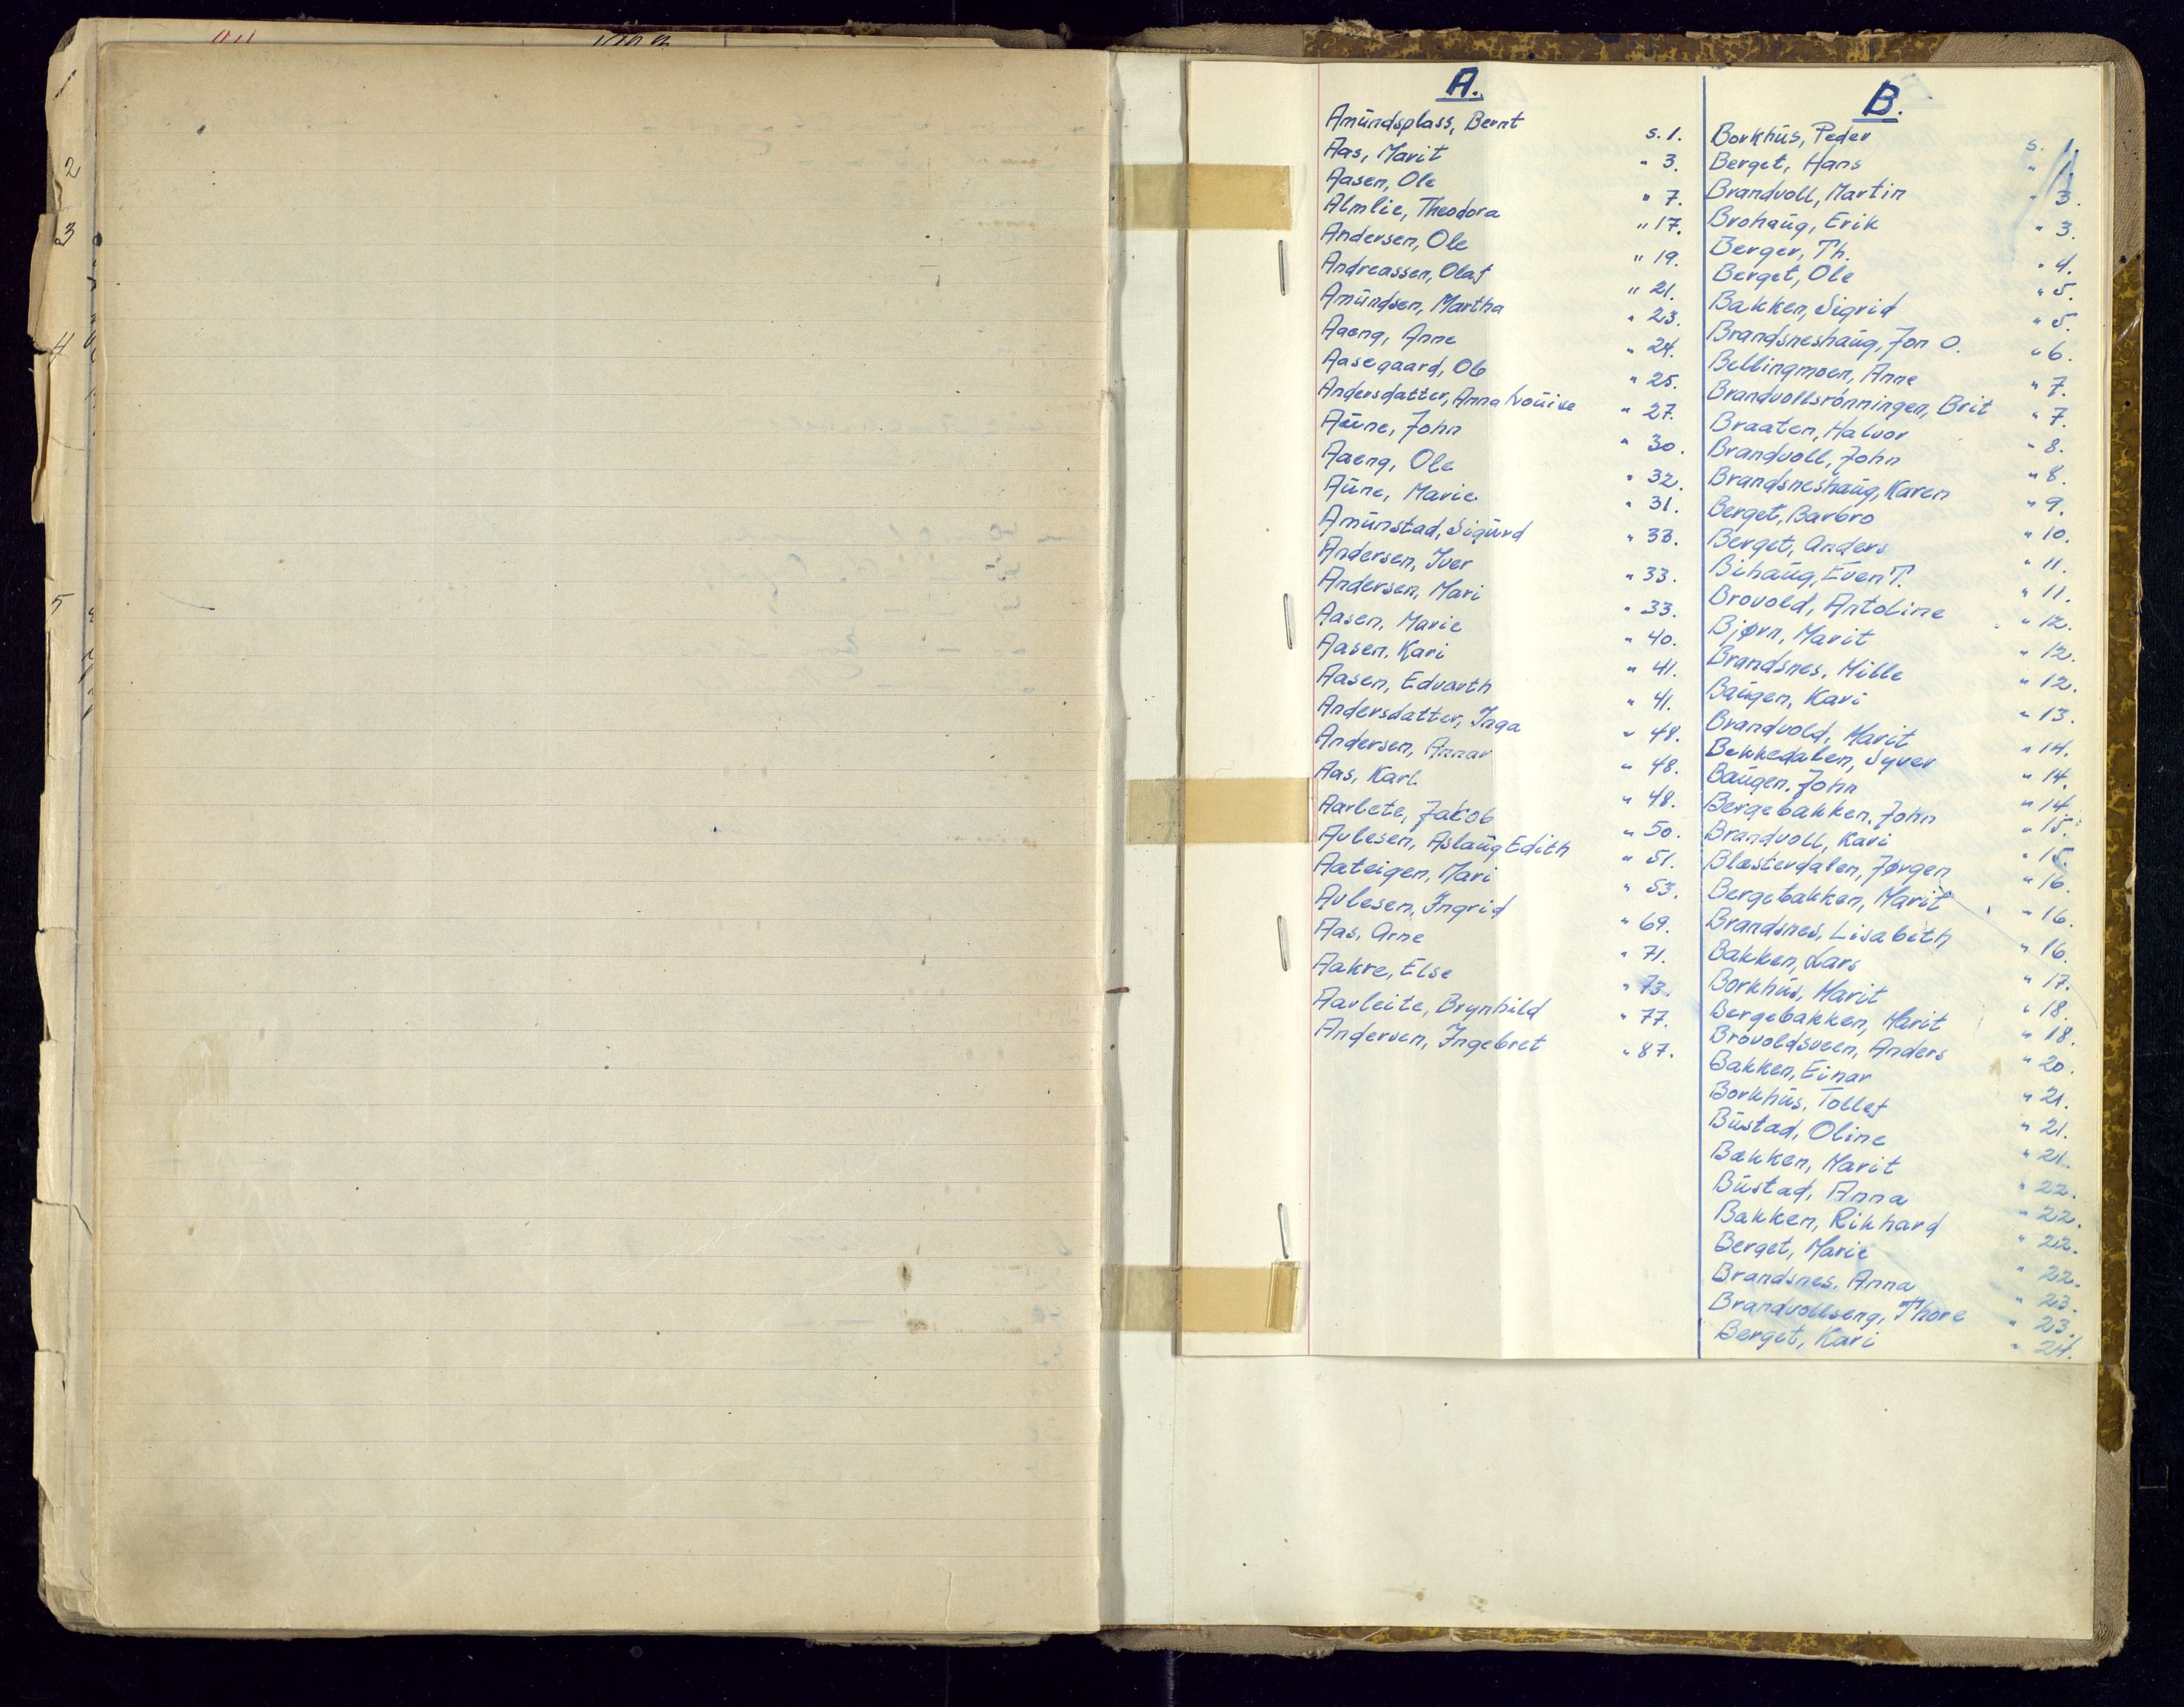 2
3
4
5
A.
Amundsplass, Bernt s. 1.
Aas, Marit " 3.
Aasen, Ole " 7.
Almlie, Theodora " 17.
Andersen, Ole " 19.
Andreassen, Olaf " 21.
Amundsen, Martha " 23.
Aaeng, Anne " 24.
Aasegaard, Ole " 25.
Andersdatter, Anna Lovise " 27.
Aune, John " 30.
Aaeng, Ole " 32.
Aune, Marie " 31.
Amunstad, Sigurd " 33.
Andersen, Iver " 33.
Andersen, Mari " 33.
Aasen, Marie " 40.
Aasen, Kari " 41.
Aasen, Edvarth " 41.
Andersdatter, Inga " 48.
Andersen, Annar " 48.
Aas, Karl " 48.
Aarlete, Jakob " 50.
Avlesen, Aslaug Edith " 51.
Aateigen, Mari " 53.
Avlesen, Ingrid " 69.
Aas, Arne " 71.
Aakre, Else " 73.
Aarleite, Brynhild " 77.
Andersen, Ingebret " 87.
B.
Borkhus, Peder s. 1.
Berget, Hans " 1.
Brandvoll, Martin " 3.
Brohaug, Erik " 3.
Berger, Th. " 4.
Berget, Ole " 5.
Bakken, Sigrid " 5.
Brandsneshaug, Jon O. " 6.
Bellingmoen, Anne " 7.
Brandvollsrönningen, Brit " 7.
Braaten, Halvor " 8.
Brandvoll, John " 8.
Brandsneshaug, Karen " 9.
Berget, Barbro " 10.
Berget, Anders " 11.
Bihaug, Even T. " 11.
Brovold, Antoline " 12.
Bjørn, Marit " 12.
Brandsnes, Mille " 12.
Baugen, Kari " 13.
Brandvold, Marit " 14.
Bekkedalen, Syver " 14.
Baugen, John " 14.
Bergebakken, John " 15.
Brandvoll, Kari " 15.
Blæsterdalen, Jørgen " 16.
Bergebakken, Marit " 16.
Brandsnes, Lisabeth " 16.
Bakken, Lars " 17.
Borkhus, Marit " 18.
Bergebakken, Marit " 18.
Brovoldsveen, Anders " 20.
Bakken, Einar " 21.
Borkhus, Tollef " 21.
Bustad, Oline " 21.
Bakken, Marit " 22.
Bustad, Anna " 22.
Bakken, Rikhard " 22.
Berget, Marie " 22.
Brandsnes, Anna " 23.
Brandvollseng, Thore " 23.
Berget, Kari " 24.